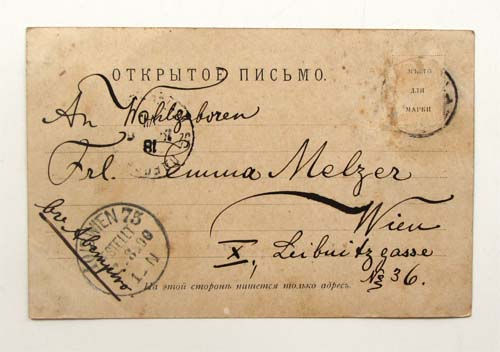 ОТКРЫТОЕ ПИСЬМО.
МѢСТО
ДЛЯ
МАРКИ
An Wohlgeboren
18
Frl. Emma Melzer
Wien
WIEN 75
X, Leibnitzgasse
№ 36.
На этой сторонѣ пишется только адресъ.